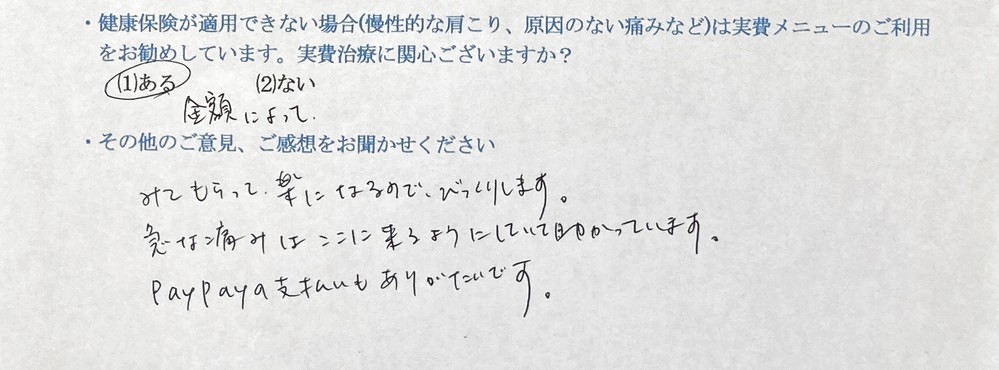 ・健康保険が適用できない場合(慢性的な肩こり、原因のない痛みなど)は実費メニューのご利用
をお勧めしています。実費治療に関心ございますか？
(1)ある (2)ない
金額によって.
・その他のご意見、ご感想をお聞かせください
みてもらって、楽になるので、びっくりします。
急な痛みはここに来るようにしていて助かっています。
PayPayの支払いもありがたいです。